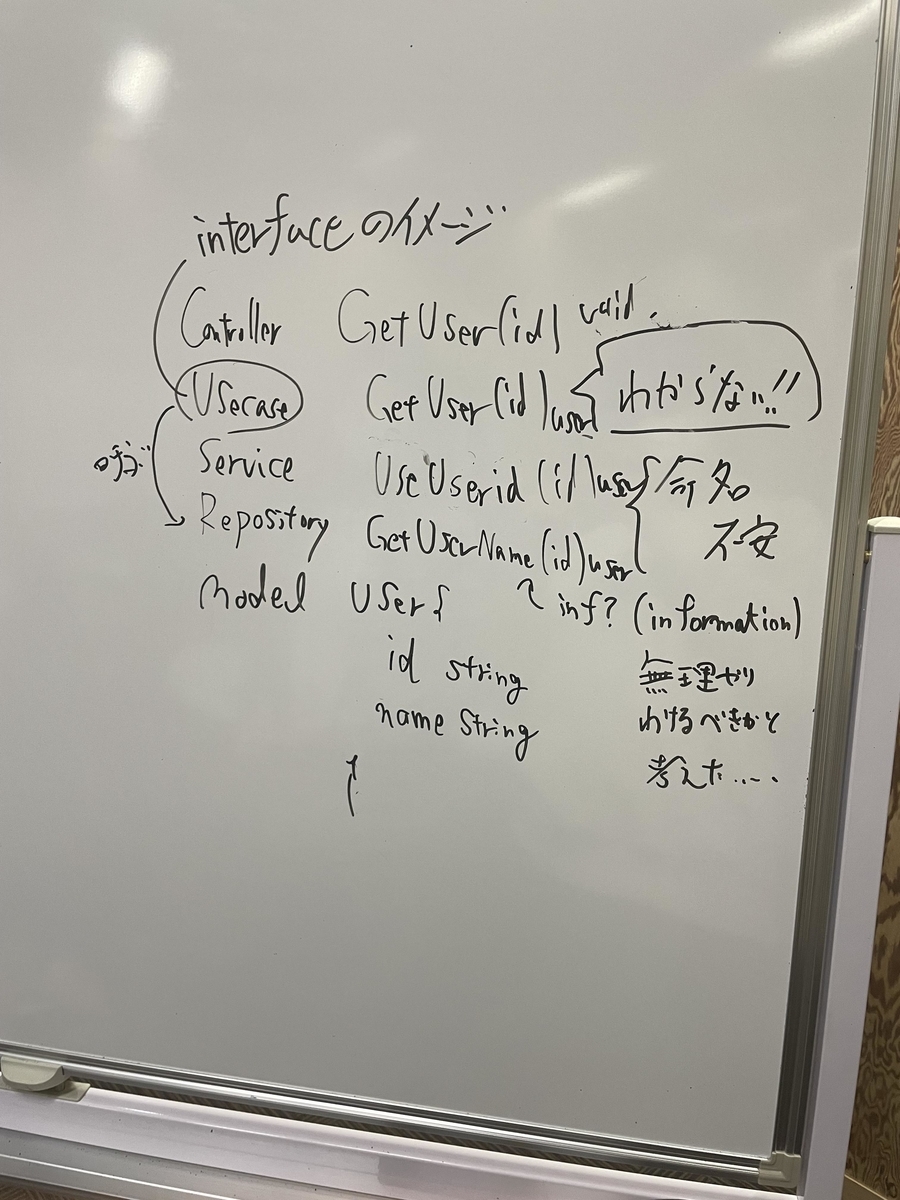 interfaceのイメージ
Controller GetUser(id) void
Usecase GetUser(id)user わからない!!
呼ぶ
Service UseUserid(id)user 命名
Repository GetUserName(id)user 不安
model user{ inf? (information)
id string 無理やり
name string わけるべきかと
} 考えた.....